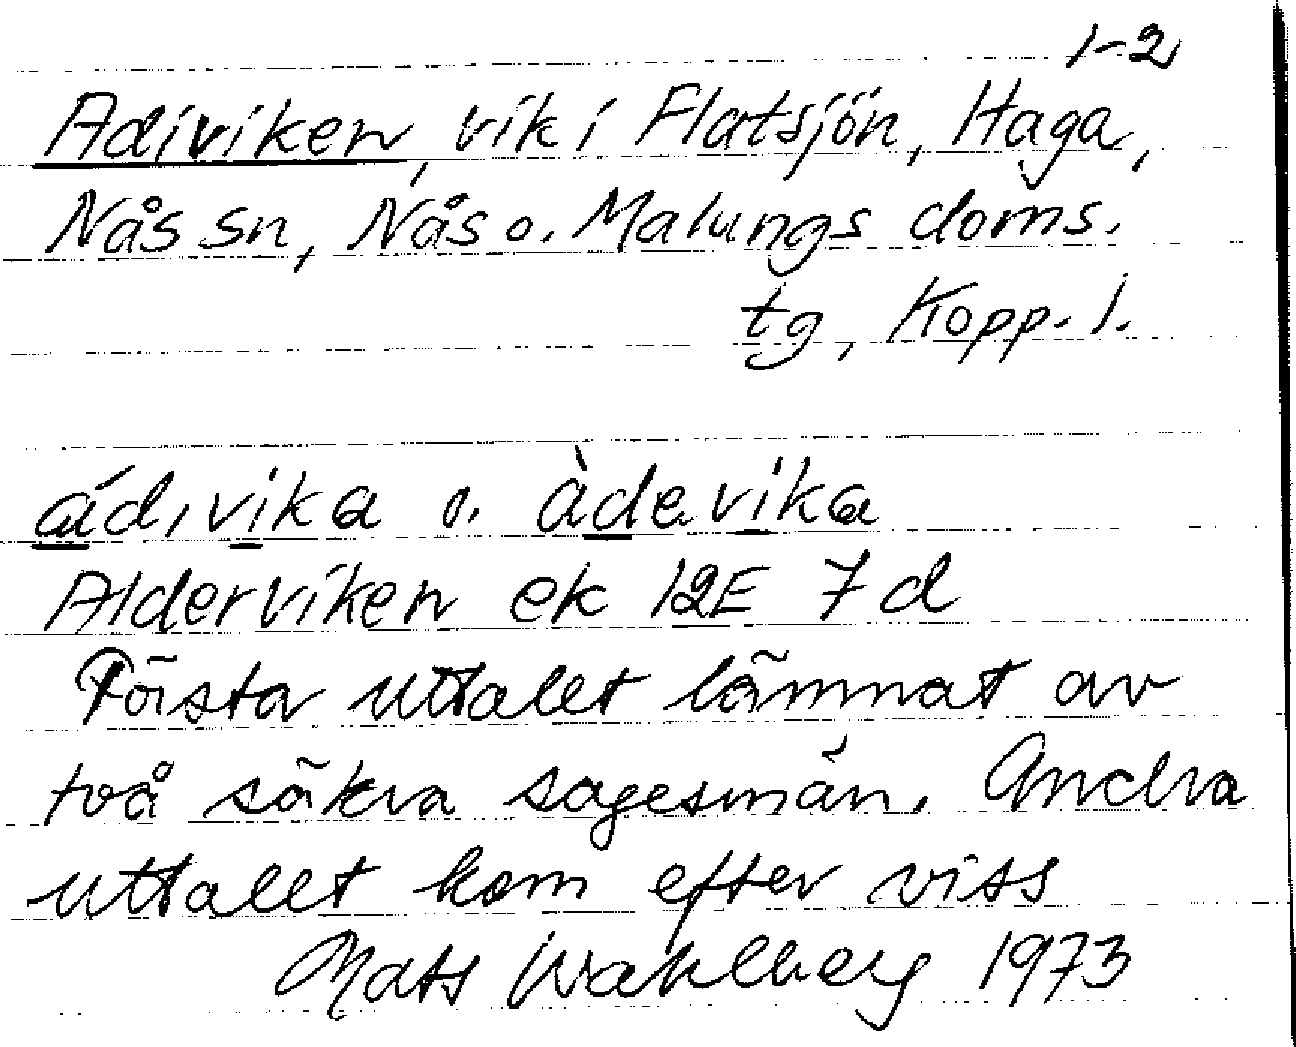 1-2
Adiviken, vik i Flatsjön, Haga,
Nås sn, Nås o. Malungs doms.
tg, Kopp. l.
ád,vika o. àdevika
Alderviken ek 12E 7d
Första uttalet lämnat av
två säkra sagesmän. Andra
uttalet kom efter viss
Mats Wahlberg 1973